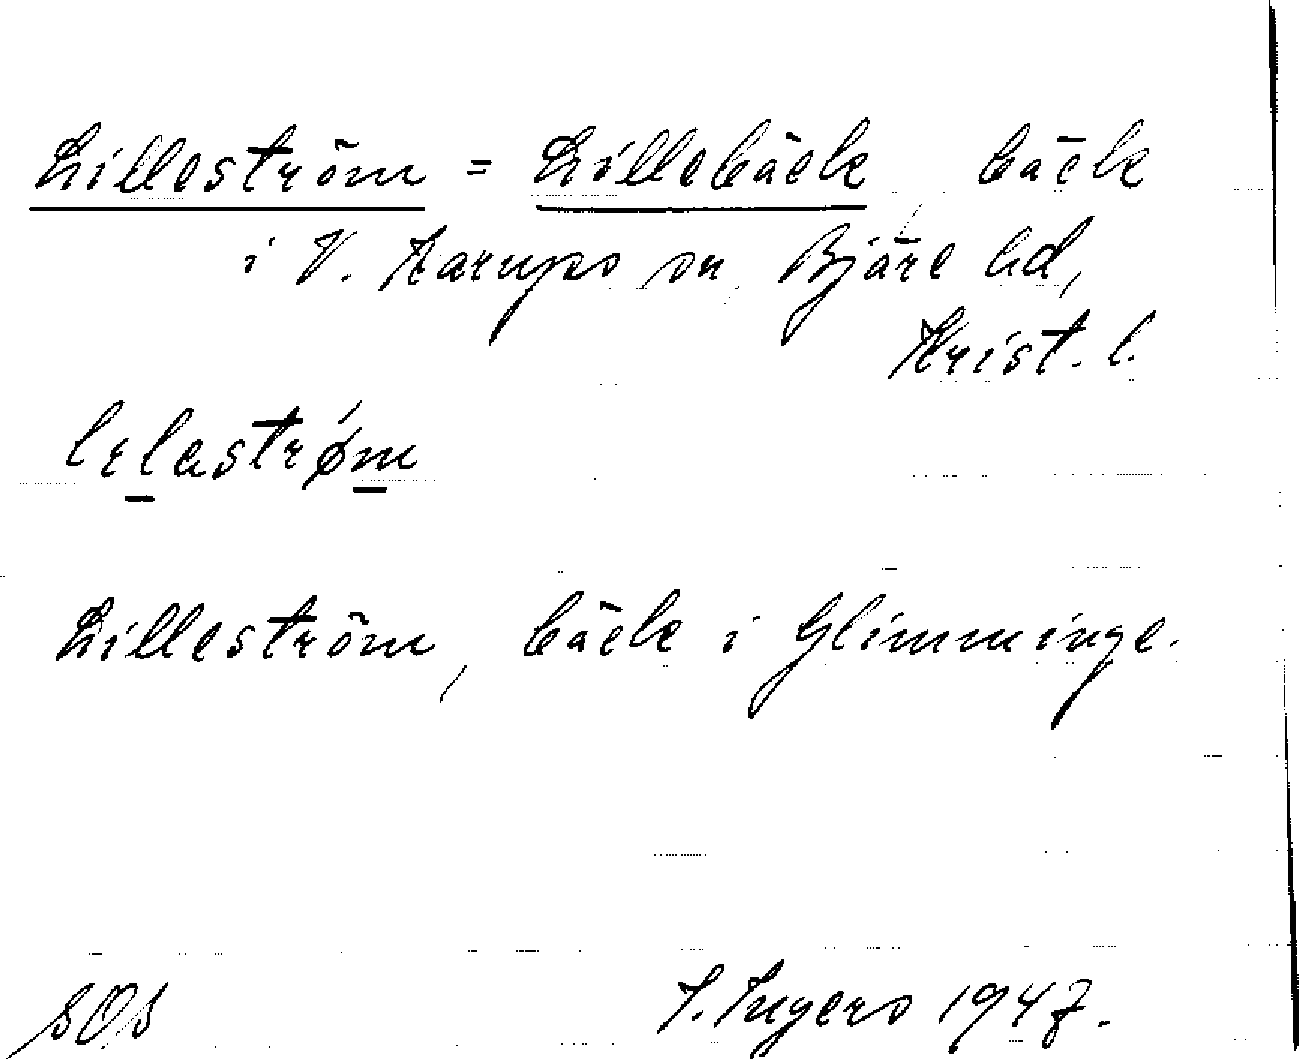 Lilleström = Lillebäck bäck
i V. Karups sn, Bjäre hd,
Krist. l.
lelaströ́m
Lilleström, bäck i Glimminge.
SOS I. Ingers 1947.